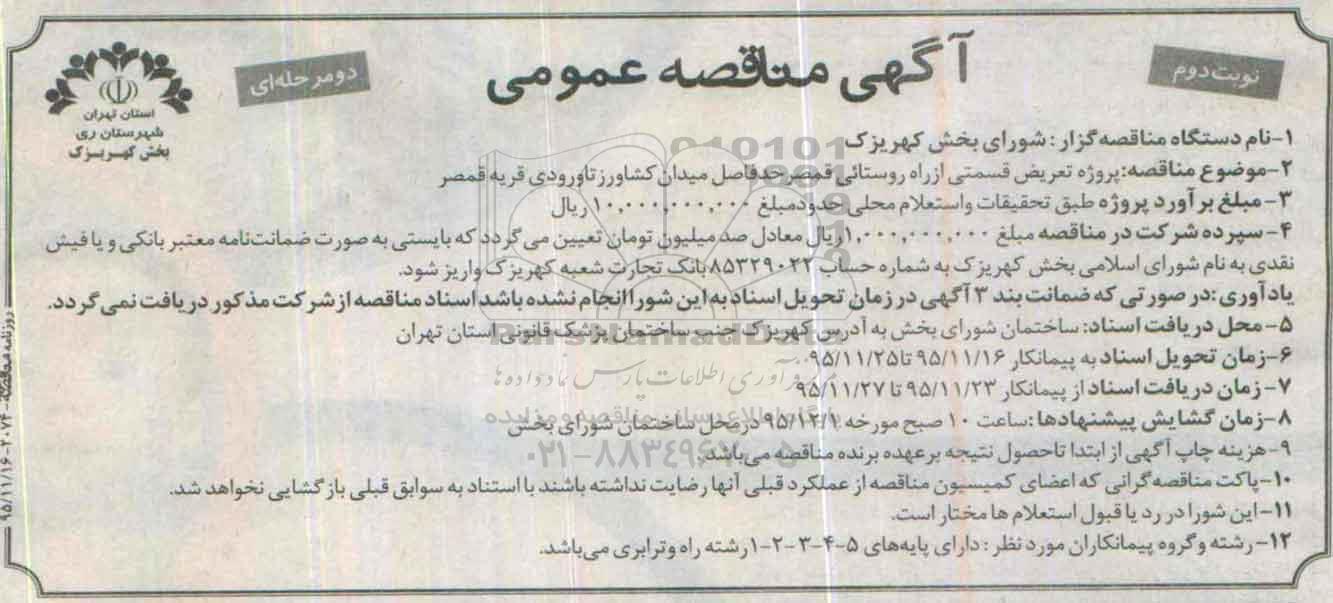 آگهی مناقصه عمومی
نوبت دوم
دو مرحله‌ای
استان تهران
شهرستان ری
بخش کهریزک
۱-نام دستگاه مناقصه گزار: شورای بخش کهریزک
۲-موضوع مناقصه: پروژه تعریض قسمتی از راه روستائی قمصر حدفاصل میدان کشاورز تا ورودی قریه قمصر
۳- مبلغ برآورد پروژه طبق تحقیقات و استعلام محلی حدود مبلغ ۱۰,۰۰۰,۰۰۰,۰۰۰ ریال
۴- سپرده شرکت در مناقصه مبلغ ۱,۰۰۰,۰۰۰,۰۰۰ ریال معادل صد میلیون تومان تعیین می گردد که بایستی به صورت ضمانت‌نامه معتبر بانکی و یا فیش
نقدی به نام شورای اسلامی بخش کهریزک به شماره حساب ۸۵۳۲۹۰۲۲ بانک تجارت شعبه کهریزک واریز شود.
یادآوری: در صورتی که ضمانت بند ۳ آگهی در زمان تحویل اسناد به این شورا انجام نشده باشد اسناد مناقصه از شرکت مذکور دریافت نمی گردد.
۵- محل دریافت اسناد: ساختمان شورای بخش به آدرس کهریزک جنب ساختمان پزشک قانونی استان تهران
۶-زمان تحویل اسناد به پیمانکار ۹۵/۱۱/۱۶ تا ۹۵/۱۱/۲۵
۷- زمان دریافت اسناد از پیمانکار ۹۵/۱۱/۲۳ تا ۹۵/۱۱/۲۷
۸-زمان گشایش پیشنهادها: ساعت ۱۰ صبح مورخه ۹۵/۱۲/۱ در محل ساختمان شورای بخش
۹-هزینه چاپ آگهی از ابتدا تا حصول نتیجه بر عهده برنده مناقصه می‌باشد.
۱۰-پاکت مناقصه گرانی که اعضای کمیسیون مناقصه از عملکرد قبلی آنها رضایت نداشته باشند با استناد به سوابق قبلی بازگشایی نخواهد شد.
۱۱-این شورا در رد یا قبول استعلام ها مختار است.
۱۲- رشته و گروه پیمانکاران مورد نظر: دارای پایه‌های ۵-۴-۳-۲-۱ رشته راه و ترابری می‌باشد.
روزنامه مناقصه - ۲۰۷۴ - ۹۵/۱۱/۱۶
ParsNamadData
فرآوری اطلاعات پارس نماد داده ها
۰۲۱-۸۸۳۴۹۶۷۰-۵